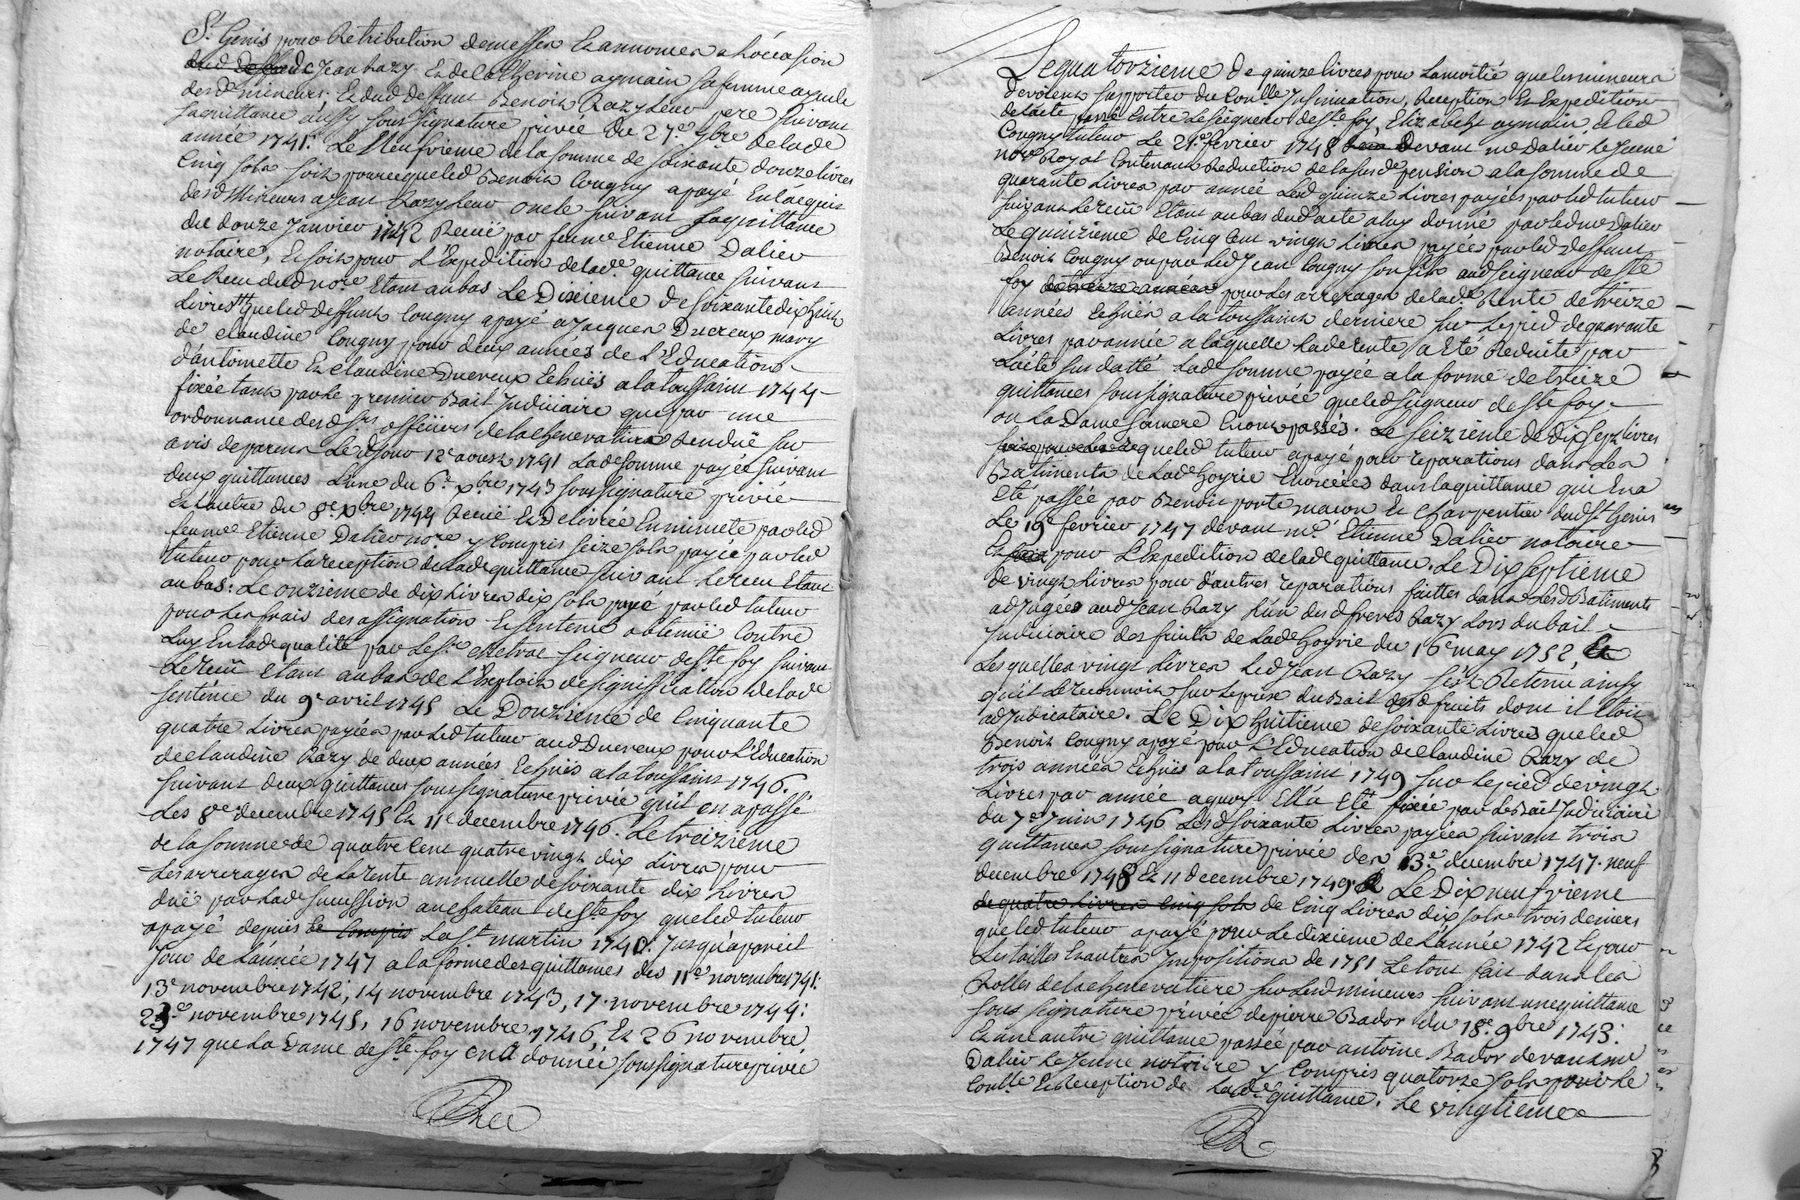 St. Genis pour Retribution de messes Et annonces a l'occasion
dud Jean Razy Et de Catherine aymain sa femme ayeule
des ds. mineurs, Et dud deffunt Benoit Razy Leur pere suivant
sa quittance aussy sous signature privée du 27e 9bre de lade
année 1741. Le Neufvieme de la somme de soixante douze livres
Cinq sols soit pour ce que led Benoit Cougny a payé En l'acquis
desd Mineurs a Jean Razy Leur oncle suivant sa quittance
du douze Janvier 1742 Receüe par feu me Etienne Dalier
notaire, Et soit pour L'Expedition de lade quittance suivant
Le Receu dud nore Etant au bas Le Dixieme de soixante dix huit
Livres que led deffunt Cougny a payé a Jacques Ducreux mary
de claudine Cougny pour deux années de L'Education
d'antoinette Et claudine Ducreux Echües a la toussaint 1744
fixée tant par le premier Bail Judiciaire que par une
ordonnance desd Srs officiers de la chenevatiere Rendüe sur
avis de parens Le d Jour 12e aoust 1741 Lade somme payée suivant
deux quittances L'une du 6e xbre 1743 sous signature privée
Et L'autre du 8e xbre 1744 Receüe Et Delivrée En minute par led
feu me Etienne Dalier nore y Compris seize sols payés par led
tuteur pour la reception de lade quittance suivant Le receu Etant
au bas: Le onzieme de dix Livres dix sols payé par led tuteur
pour Les frais des assignation Et sentence obtenüe Contre
Luy En lade qualité par Le Sr. seigneur de Ste foy suivant
Le receu Etant au bas de L'Exploit de signiffication de lade
sentence du 9e avril 1745 Le Douzieme de Cinquante
quatre Livres payées par led tuteur aud Ducreux pour L'Education
de claudine Razy de deux années Echües a la toussaint 1746.
suivant deux quittances sous signature privée qu'il en a passé
Les 8e decembre 1745 Et 11e decembre 1746. Le treizieme
de la somme de quatre Cent quatre vingt dix Livres pour
Les arrerages de la rente annuelle de soixante dix Livres
düe par lade succession au chateau de Ste foy que led tuteur
a payé depuis Le Compris La St. martin 1740. Jusqu'a pareil
Jour de L'année 1747 a la forme des quittances des 11e novembre 1741:
13e novembre 1742, 14 novembre 1743, 17. novembre 1744:
novembre 1745, 16 novembre 1746, Et 26 novembre
1747 que La Dame de Ste foy en a donnée sous signature privée
Le quatorzieme de quinze livres pour La moitié que les mineurs
devoient supporter du Conlle Insinuation, Reception Et Expedition
de L'acte passé Entre Le seigneur de Ste foy, Elizabeth aymain, Et led
Cougny tuteur Le 21e fevrier 1748 devant me Dalier Le Jeune
nore Royal Contenant Reduction de la susde pension a la somme de
quarante Livres par année Lesd quinze Livres payés par led tuteur
suivant Le receu Etant au bas dud acte a luy donné par led me Dalier
Le quinzieme de Cinq Cent vingt Livres payées par led deffunt
Benoit Cougny ou par led Jean Cougny son fils aud seigneur de Ste
foy de treize années pour les arrerages de lade Rente de treize
années Echües a la toussaint derniere sur Le pied de quarante
Livres par année a laquelle lade rente a Eté Reduite par
L'acte sus datté Lade somme payée a la forme de treize
quittances sous signature privée que led seigneur de Ste foy
ou La Dame sa mere En ont passés. Le seizieme de Dix sept livres
que led tuteur a payé pour reparations dans Les
Batiments de lade Hoyrie Enoncées dans la quittance qui En a
Eté passée par Benoit porte macon Et Charpentier dud St Genis
Le 19e fevrier 1747 devant me. Etienne Dalier notaire
pour L'Expedition de lade quittance. Le Dix septieme
de vingt Livres pour d'autres reparations faittes dans Lesd Batiments
adjugées aud Jean Razy L'un des d freres Razy Lors du bail
Judiciaire des fruits de lade Hoyrie du 16e may 1752,
Lesquelles vingt Livres led Jean Razy s'est Retenu ainsy
qu'il Le reconnoit sur Le prix du Bail desd fruits dont il Etoit
adjudicataire. Le Dix huitieme de soixante Livres que led
Benoit Cougny a payé pour L'Education de claudine Razy de
trois années Echües a la toussaint 1749 sur Le pied de vingt
Livres par année a quoy Ella Eté fixée par Led Bail Judiciaire
du 7e Juin 1746 Lesd soixante Livres payées suivant trois
quittances sous signature privée des 13e decembre 1747. neuf
decembre 1748 Et 11 decembre 1749 Le Dix neufvieme
de quatre Livres Cinq sols de Cinq Livres dix sols trois deniers
que led tuteur a payé pour Le dixieme de L'année 1742 Et pour
Les tailles Et autres Impositions de 1751 Le tout fait dans les
Rolles de la chenevatiere sur Lesd mineurs suivant une quittance
sous signature privée de pierre Bador du 18e 9bre 1743:
Et une autre quittance passée par antoine Bador devant me
Dalier Le Jeune notaire y Compris quatorze sols pour le
Conlle Et Reception de Lade quittance. Le vingtieme